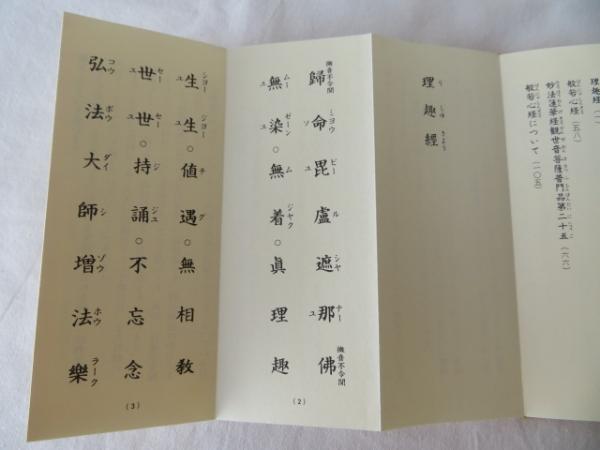 理趣経（一）
般若心経（五八）
妙法蓮華経観世音菩薩普門品第二十五（六六）
般若心経について（一〇五）
理趣經
歸命毘盧遮那佛
無染。無着。眞理趣
(2)
生生。値遇。無相教
世世。持誦。不忘念
弘法大師増法樂
(3)